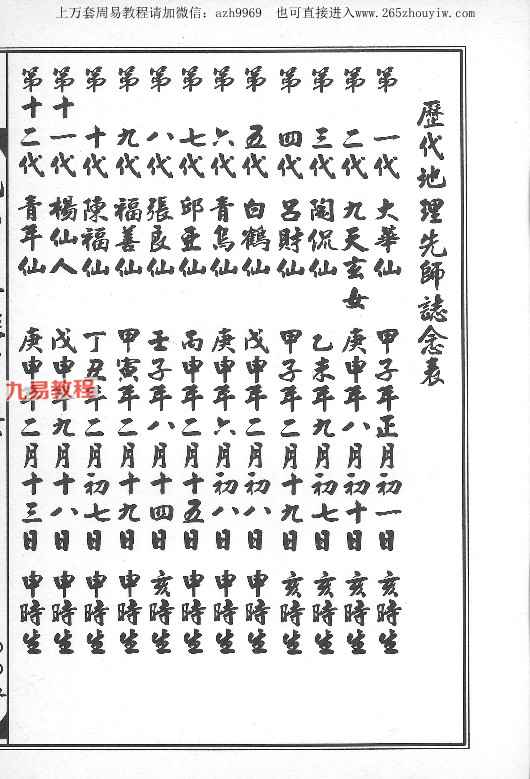 上万套周易教程请加微信：azh9969 也可直接进入www.265zhouyiw.com
歷代地理先師誌念表
第一代 大華仙 甲子年正月初一日 亥時生
第二代 九天玄女 庚申年八月初十日 亥時生
第三代 陶侃仙 乙未年九月初七日 亥時生
第四代 呂財仙 甲子年二月十九日 亥時生
第五代 白鶴仙 戊申年二月初八日 申時生
第六代 青烏仙 庚申年六月初八日 申時生
第七代 邱亚仙 丙申年二月十五日 申時生
第八代 張良仙 壬子年八月十四日 亥時生
第九代 福善仙 甲寅年二月十九日 申時生
第十代 陳福仙 丁丑年二月初七日 申時生
第十一代 楊仙人 戊申年九月十八日 申時生
第十二代 青年仙 庚申年二月十三日 申時生
九易教程